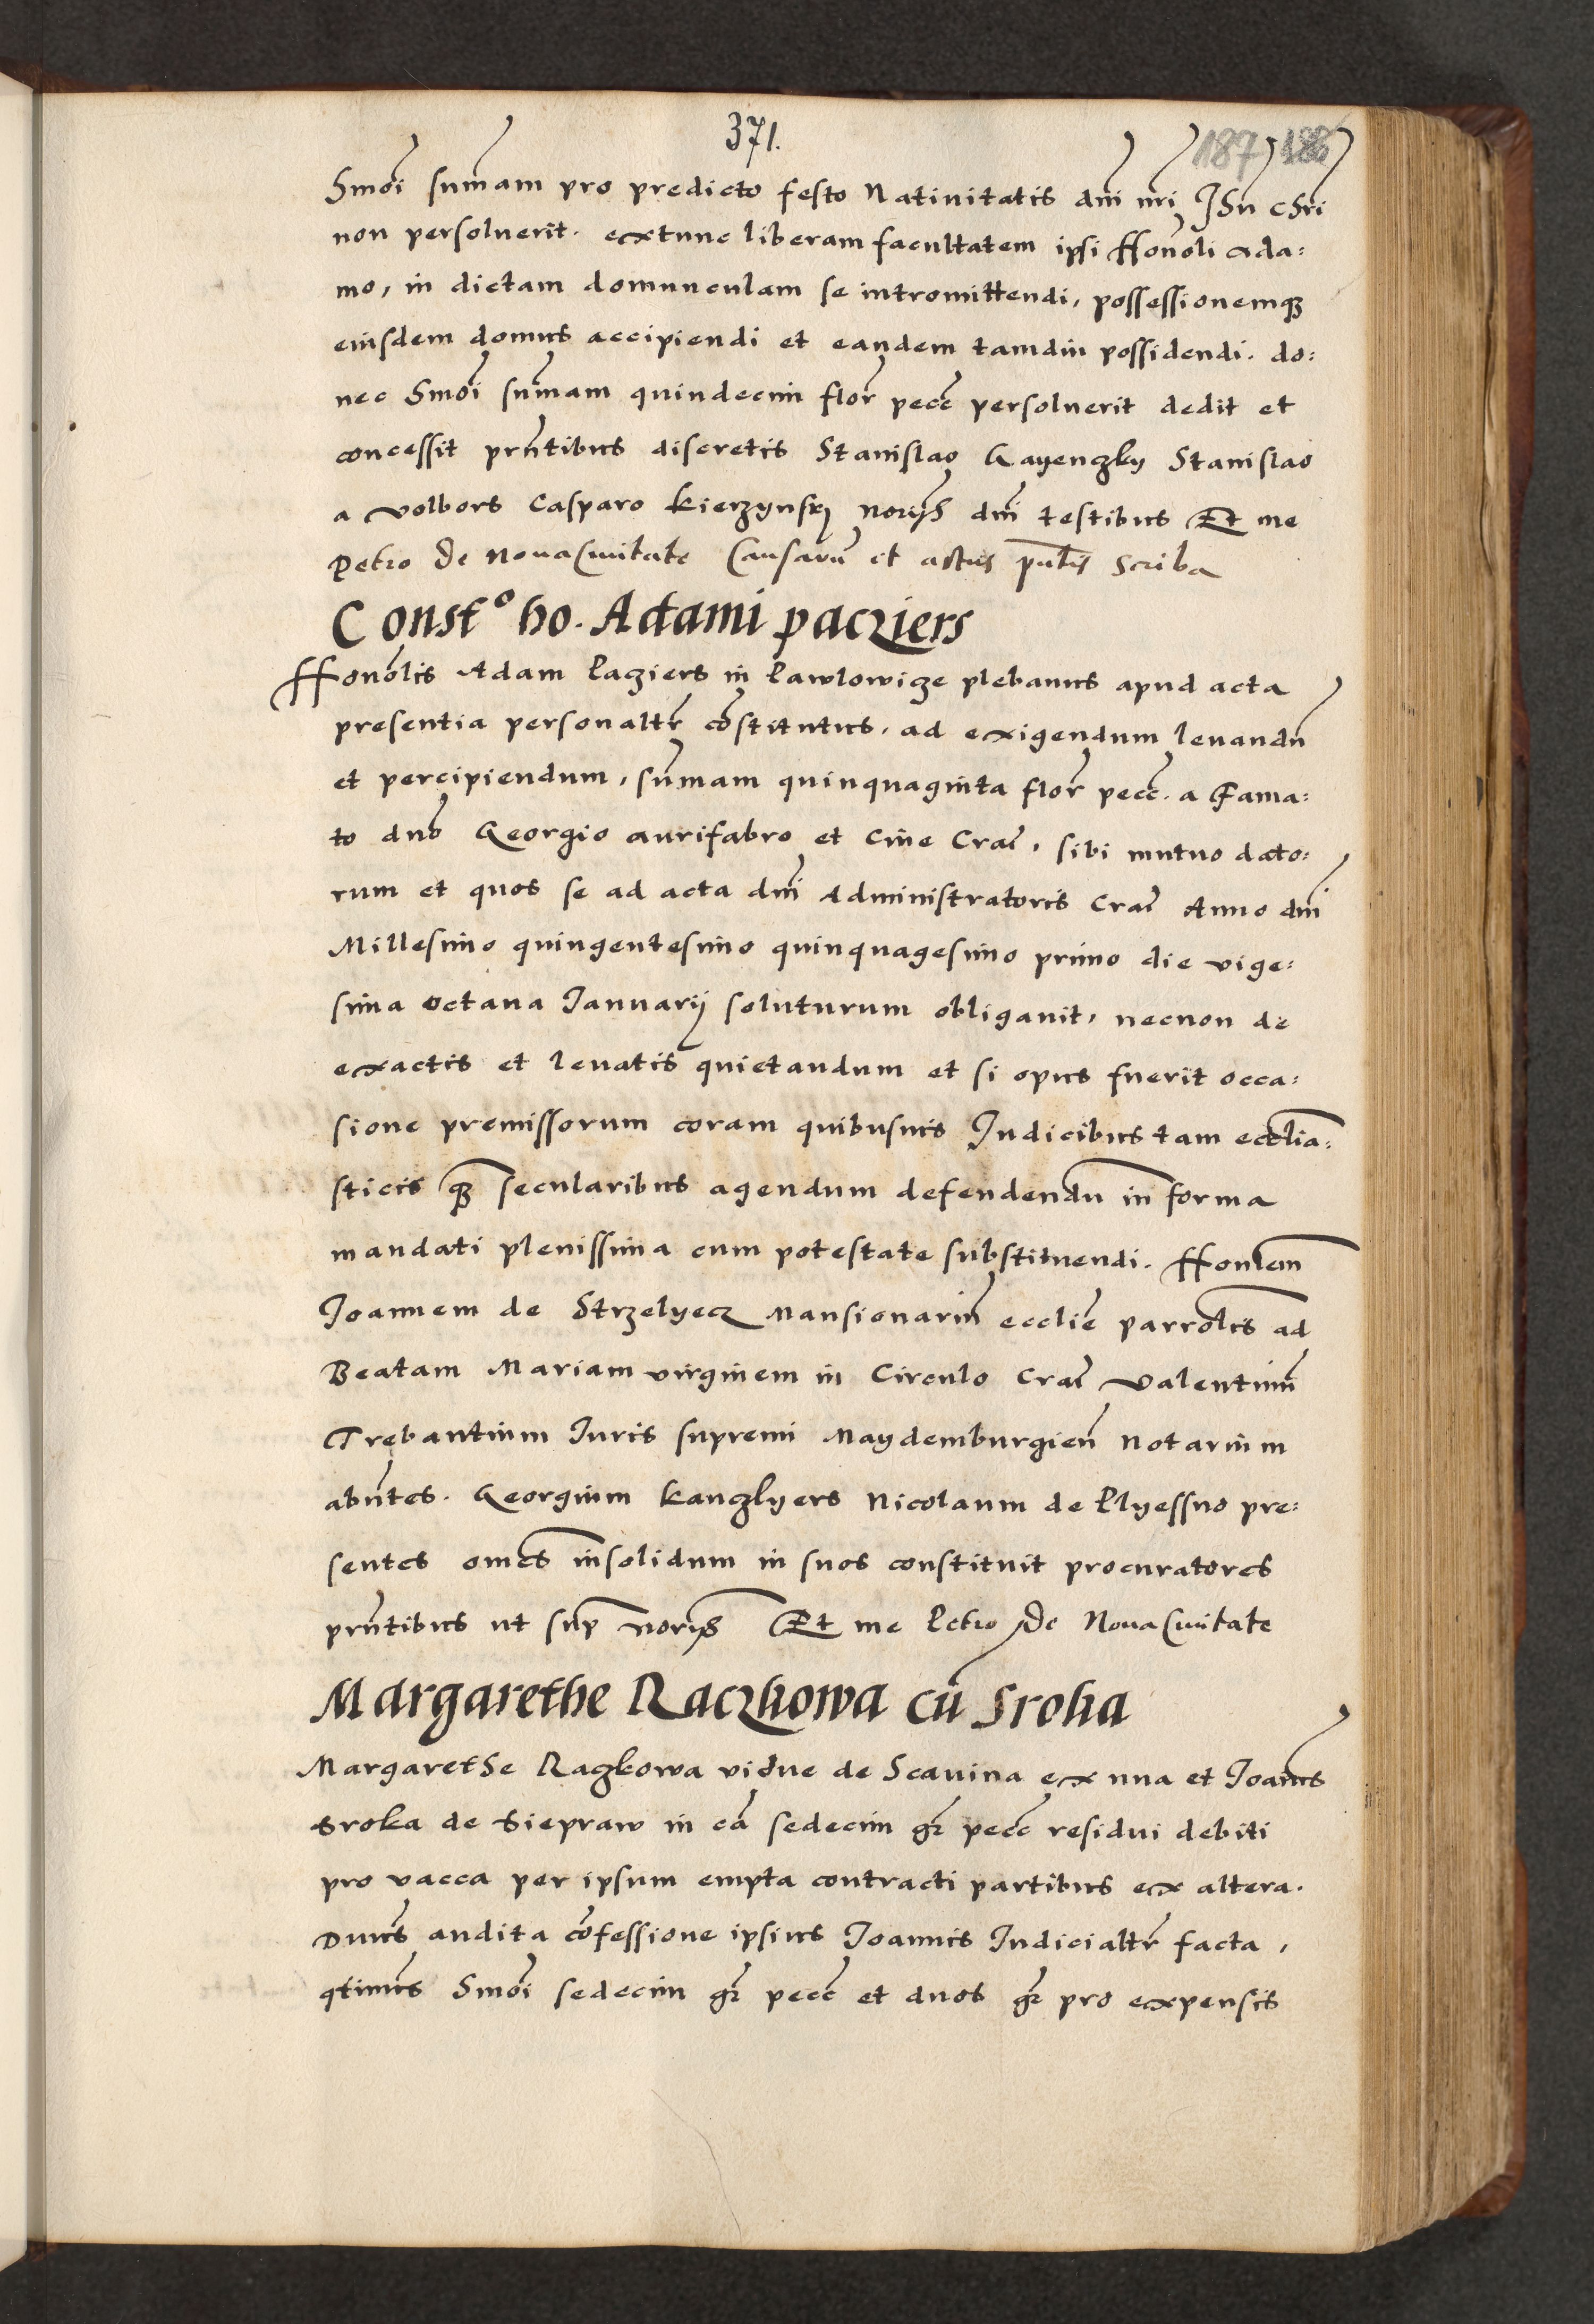 371.
187 188
Hmoi summam pro predicto festo Nativitatis dni nri Jhu chri
non persoluerit. extunc liberam facultatem ipsi Honoli Ada:
mo, in dictam domunculam se intromittendi, possessionemq3
eiusdem domus accipiendi et eandem tamdiu possidendi. do:
nec Hmoi sumam quindecim flor pecc persoluerit dedit et
concessit prntibus discretis Stanislao Gayenczky Stanislao
a Volbors Casparo Kierzynsky norijs dni testibus Et me
Petro de Nova Civitate Causaru et actus publis Scriba
Const° ho. Adami pacziers
Honolis Adam Pacziers in Pawlowicze plebanus apud acta
presentia personaltr costitutus, ad exigendum leuandu
et percipiendum, sumam quinquaginta flor pecc. a Fama:
to dno Georgio aurifabro et Cive Crac, sibi mutuo dato:
rum et quos se ad acta dni Administratoris Crac Anno dni
Millesimo quingentesimo quinquagesimo primo die vige:
sima octaua Januarij soluturum obligauit, necnon de
exactis et leuatis quietandum et si opus fuerit occa:
sione premissorum coram quibusuis Judicibus tam ecclia:
sticis q3 secularibus agendum defendendu in forma
mandati plenissima cum potestate substituendi. Honlem
Joannem de Strzelyecz Mansionariu ecclie parrolis ad
Beatam Mariam virginem in Circulo Crac Valentinu
Trebantium Juris supremi Maydemburgien Notarium
abntes. Georgium Kanczlyers Nicolaum de Plyessno pre:
sentes omes insolidum in suos constituit procuratores
prntibus ut sup norijs Et me Petro de Nova Civitate
Margarethe Raczkowa cu Sroka
Margarethe Raczkowa vidue de Scavina ex una et Joanis
Sroka de Siepraw in ca sedecim gr pecc residui debiti
pro vacca per ipsum empta contracti partibus ex altera.
Dnus audita cofessione ipsius Joannis Judicialtr facta,
qtinus Hmoi sedecim gr pecc et duos gr pro expensis